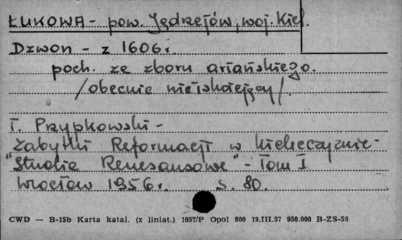 ŁUKOWA - pow. Jędrzejów, woj. Kiel.
Dzwon - z 1606 r.
poch. ze zboru ariańskiego.
/obecnie nieistniejący/.
T. Przypkowski -
Zabytki Reformacji w Kielecczyźnie -
"Studia Renesansowe" - Tom I
Wrocław 1956 r. S. 80.
CWD — B-15b Karta katal. (z liniat.) 1057/P Opol 800 19.III.57 950.000 B-ZS-56